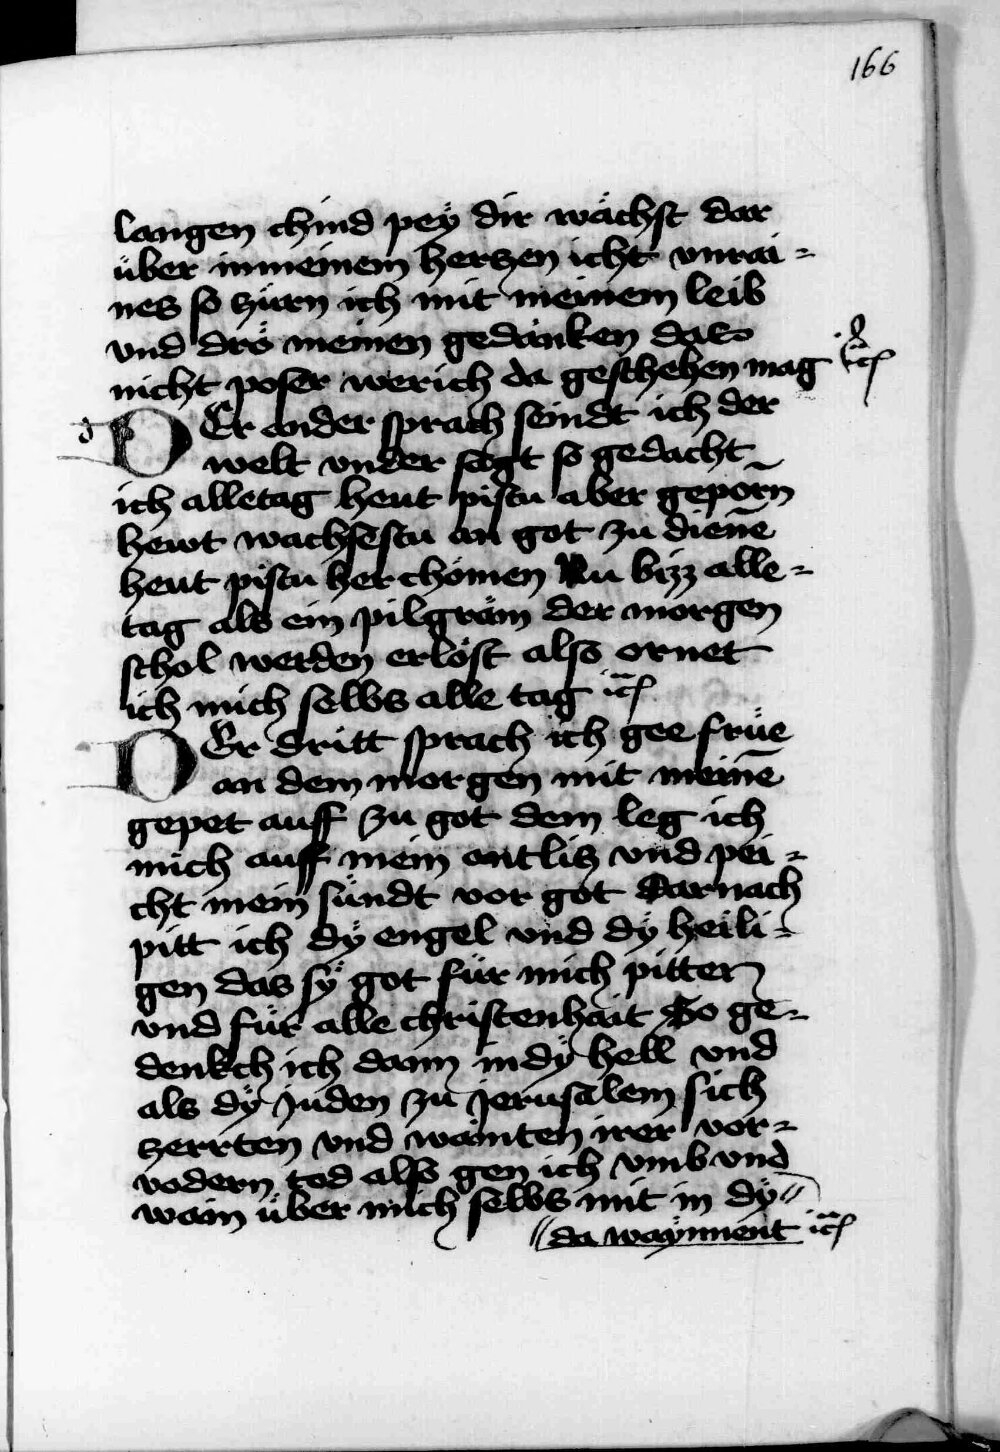 166
langen chind peÿ dir wächst dar
über inmeinem herczen icht vnrai=
nes so zürn ich mit meinem leib
vnd drö meinen gedänken das
nicht poser werich da geschehen mag
DEr ander sprach seindt ich der
welt vnder sagt so gedacht
ich alletag heut pistu aber geporn̄
hewt wachsestu an got zu dienē
heut pistu her chömen Nu bizz alle=
tag als ein pilgräm der morgen
schol werden erlöst also ornet
ich mich selbs alle tag
DEr dritt sprach ich gee früe
an dem morgen mit meinē
gepet auff zu got dem leg ich
mich auff mein antlitz vnd pei=
cht mein sündt vor got Darnach
pitt ich dÿ engel vnd dÿ heili=
gen das sÿ got für mich pitten
vnd für alle christenhait So ge=
denkch ich dann in dÿ hell vnd
als dÿ juden zu jerusalem sich
zerrten vnd wainten irer vor=
vodern tod also gen ich vmb vnd
wain über mich selbs mit in dÿ //
// da waÿnnent